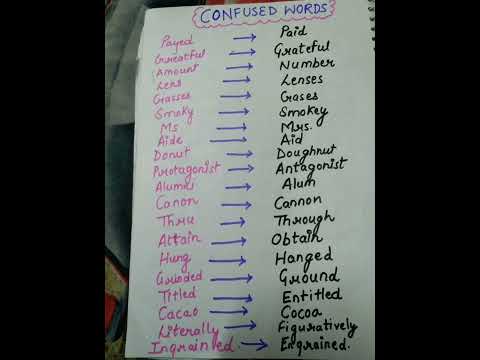 CONFUSED WORDS
Payed → Paid
Greatful → Grateful
Amount → Number
Lens → Lenses
Gasses → Gases
Smoky → Smokey
Ms → Mrs.
Aide → Aid
Donut → Doughnut
Protagonist → Antagonist
Alumni → Alum
Canon → Cannon
Thru → Through
Attain → Obtain
Hung → Hanged
Grinded → Ground
Titled → Entitled
Cacao → Cocoa
Literally → Figuratively
Ingrained → Engrained.